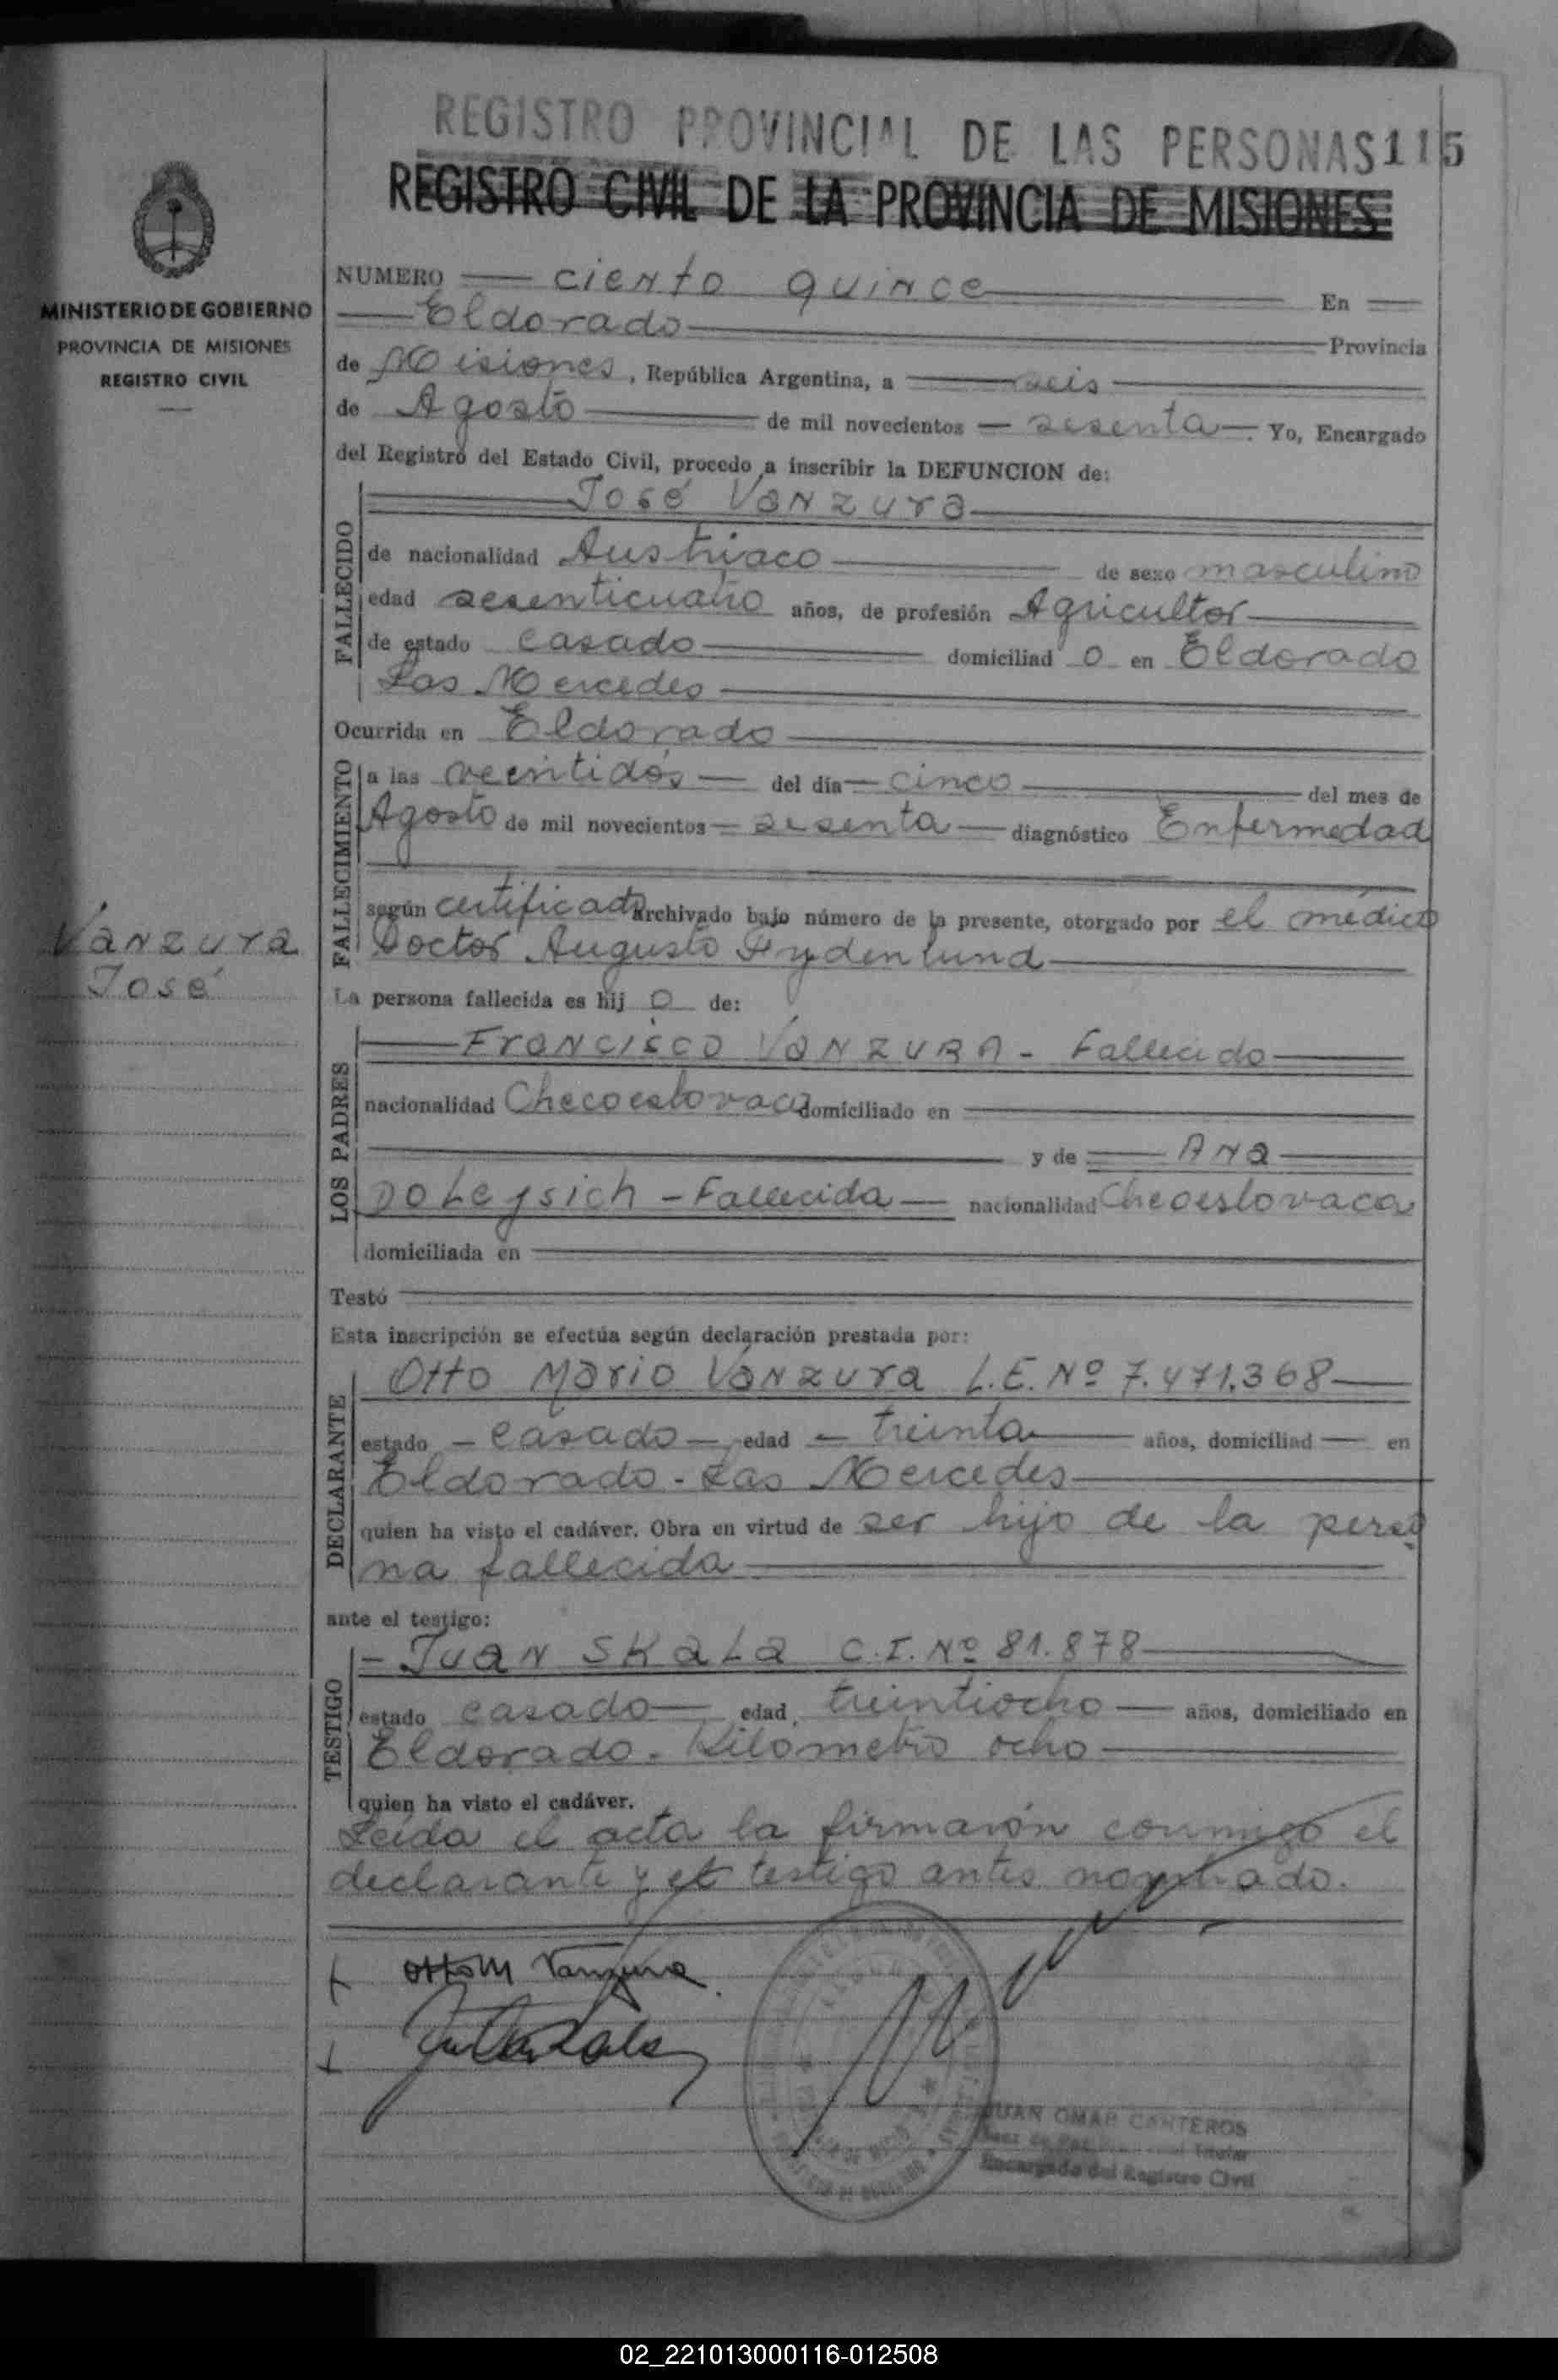 REGISTRO PROVINCIAL DE LAS PERSONAS 115
REGISTRO CIVIL DE LA PROVINCIA DE MISIONES
MINISTERIO DE GOBIERNO
PROVINCIA DE MISIONES
REGISTRO CIVIL
NUMERO ciento quince En
Eldorado Provincia
de Misiones, República Argentina, a seis
de Agosto de mil novecientos sesenta. Yo, Encargado
del Registro del Estado Civil, procedo a inscribir la DEFUNCION de:
José Vanzura
FALLECIDO
de nacionalidad Austriaco de sexo masculino
edad sesenticuatro años, de profesión Agricultor
de estado casado domiciliad o en Eldorado
Las Mercedes
Ocurrida en Eldorado
FALLECIMIENTO
a las veintidós del día cinco del mes de
Agosto de mil novecientos sesenta diagnóstico Enfermedad
según certificado archivado bajo número de la presente, otorgado por el médico
Doctor Augusto Frydenlund
Vanzura
José
La persona fallecida es hij o de:
LOS PADRES
Francisco VANZURA - Fallecido
nacionalidad Checoeslovaca domiciliado en
y de Ana
Doleysich - Fallecida nacionalidad Checoeslovaca
domiciliada en
Testó
Esta inscripción se efectúa según declaración prestada por:
DECLARANTE
Otto Mario Vanzura L.E. Nº 7.471.368
estado - casado - edad - treinta años, domiciliad en
Eldorado - Las Mercedes
quien ha visto el cadáver. Obra en virtud de ser hijo de la perso
na fallecida
ante el testigo:
TESTIGO
- Juan Skala C.I. Nº 81.878
estado casado edad treintiocho años, domiciliado en
Eldorado - Kilómetro ocho
quien ha visto el cadáver.
Leída el acta la firmarón conmigo el
declarante y el testigo antes nombrado.
Otto M Vanzura
JUAN OMAR CANTEROS
Encargado del Registro Civil
02_221013000116-012508